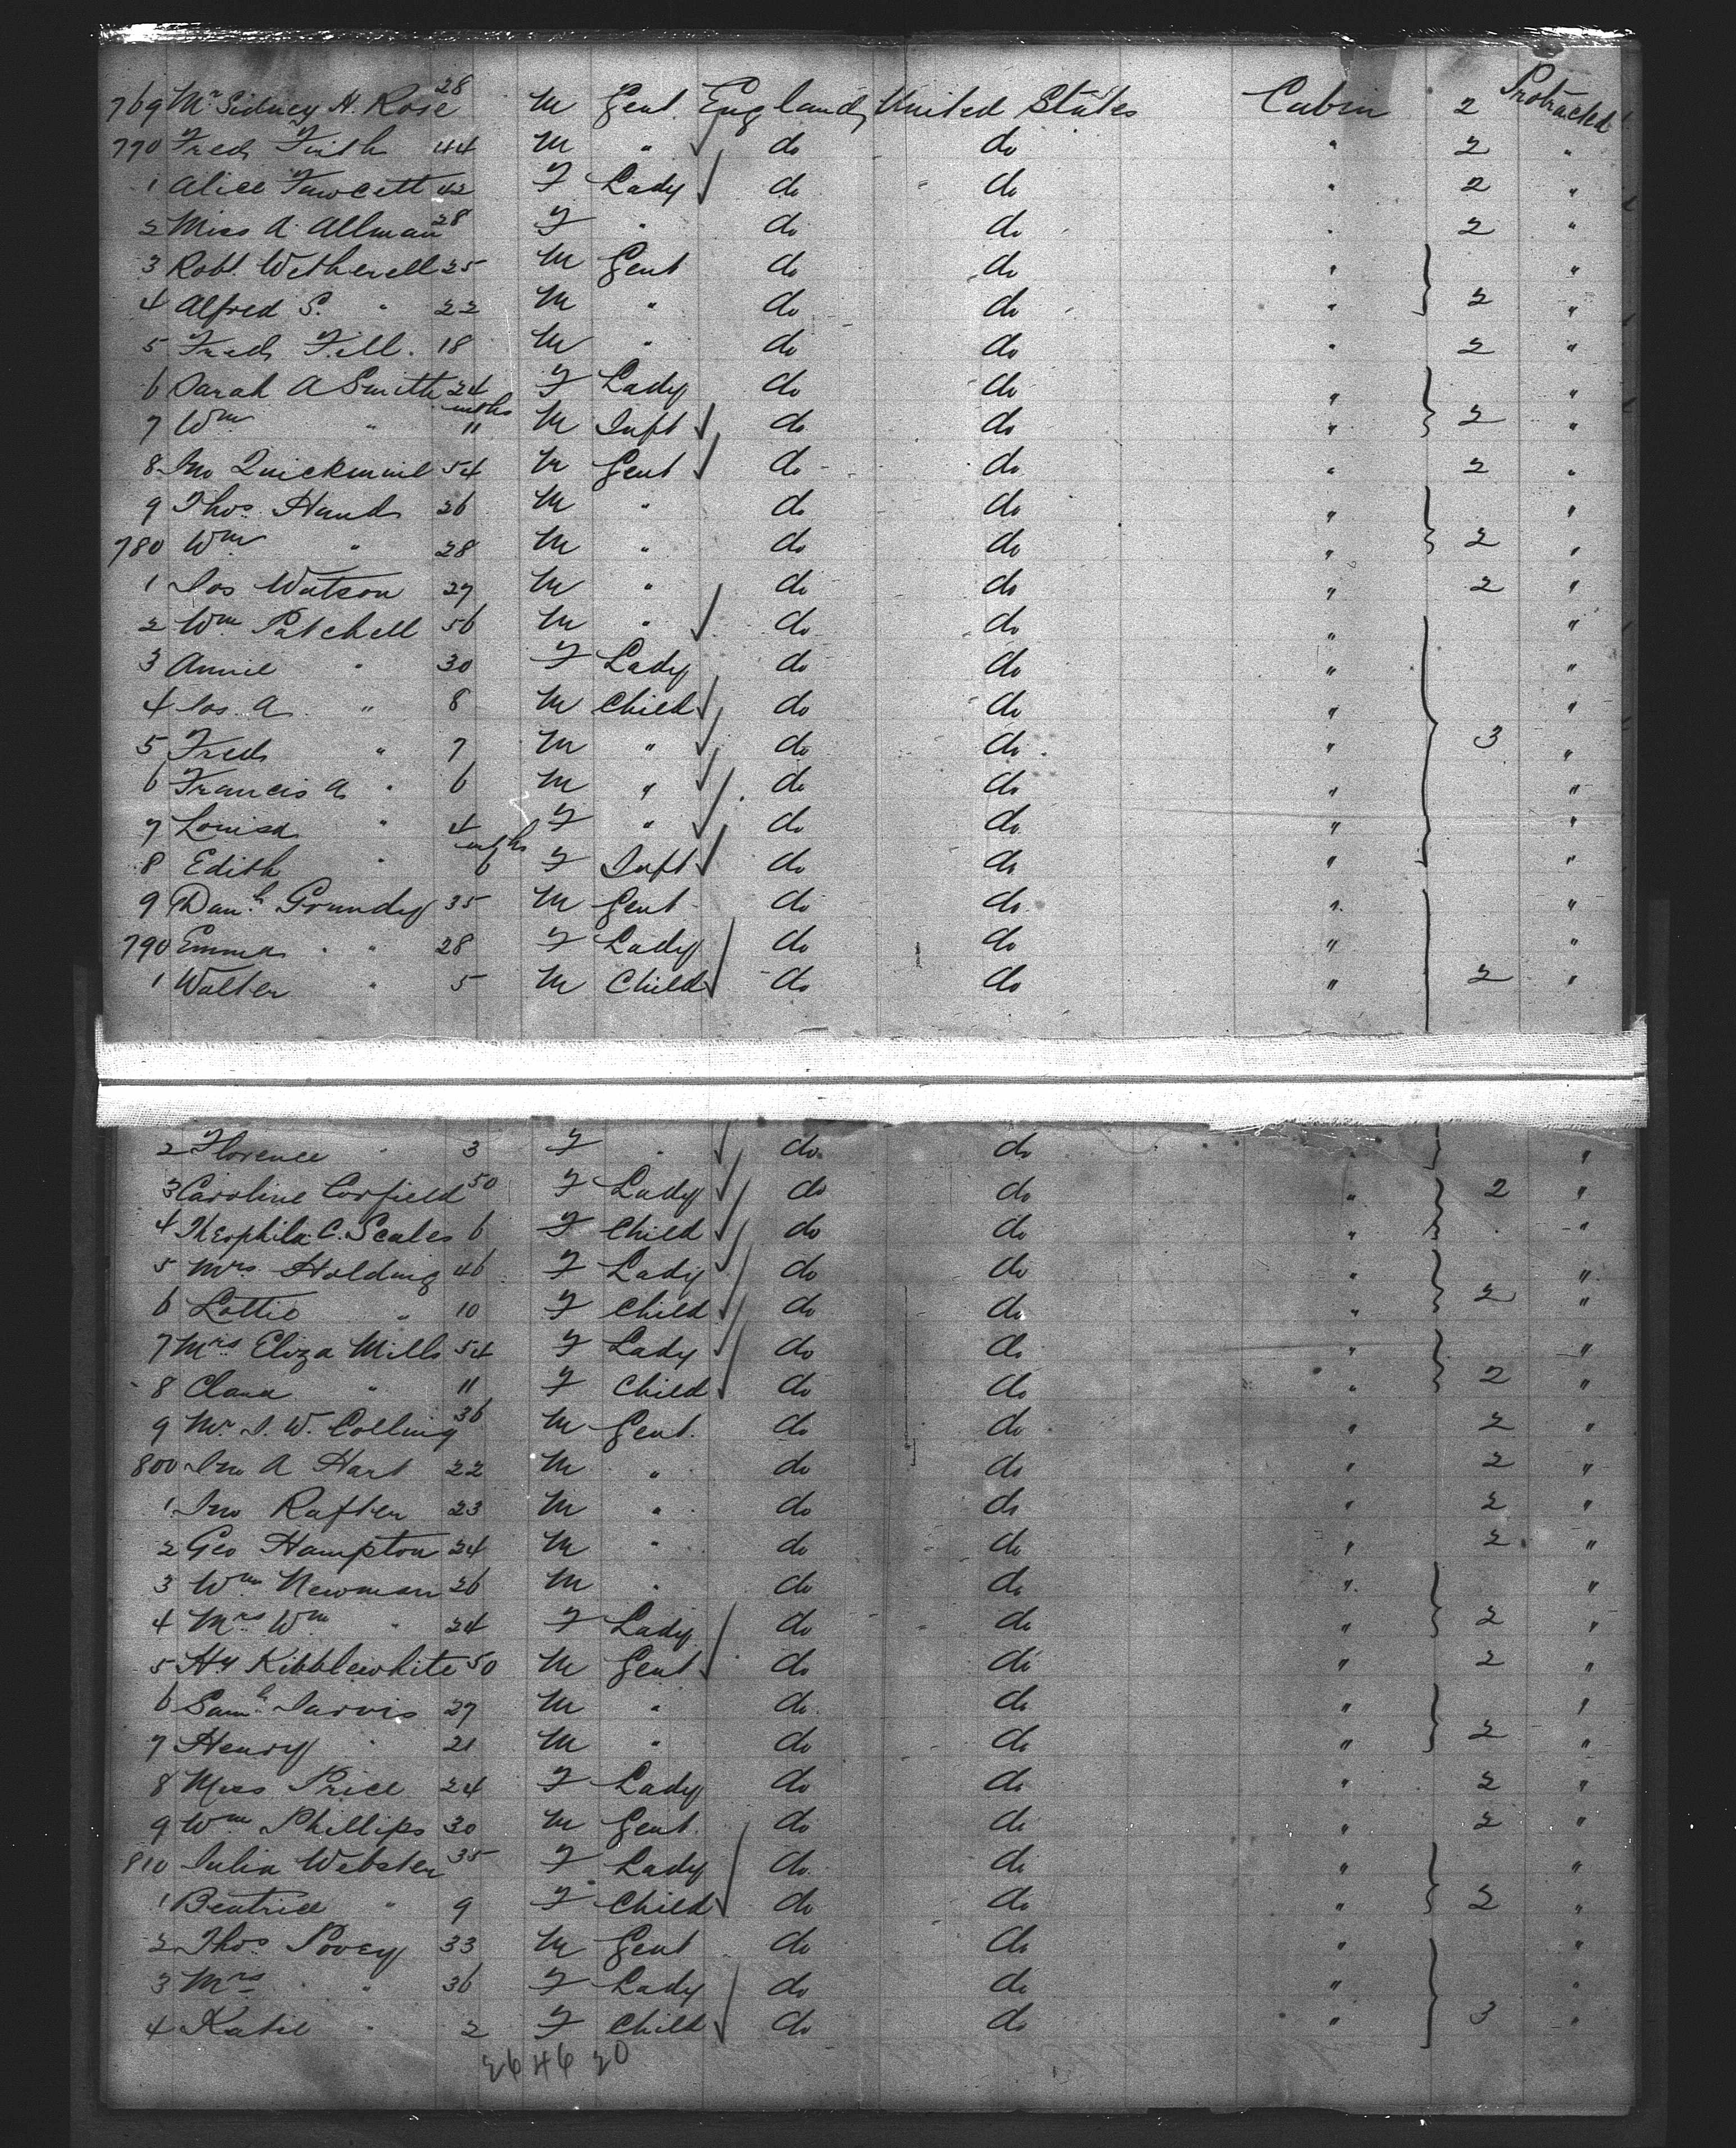 769 Mr Sidney H. Rose 28 M Gent England United States Cabin 2 Protracted
770 Fred Firth 44 M " do do " 2 "
1 Alice Fawcett 42 F Lady do do " 2 "
2 Miss A. Allman 28 F " do do " 2 "
3 Robt Wetherell 25 M Gent do do " "
4 Alfred S. " 22 M " do do " 2 "
5 Fred Fill. 18 M " do do " 2 "
6 Sarah A Smith 24 F Lady do do " "
7 Wm " 11 mths M Inft do do " 2 "
8 Jno 54 M Gent do do " 2 "
9 Thos Hand 26 M " do do " "
780 Wm " 28 M " do do " 2 "
1 Jos Watson 27 M " do do " 2 "
2 Wm Patchell 56 M " do do " "
3 Annie " 30 F Lady do do " "
4 Jos. A " 8 M Child do do " "
5 Fred " 7 M " do do " 3 "
6 Francis A " 6 M " do do " "
7 Louisa " 4 F " do do " "
8 Edith " 6 mths F Inft do do " "
9 Danl Grundy 35 M Gent do do " "
790 Emma " 28 F Lady do do " "
1 Walter " 5 M Child do do " 2 "
2 Florence " 3 F " do do " "
3 Caroline Corfield 50 F Lady do do " 2 "
4 Theophila C. Scales 6 F Child do do " "
5 Mrs Holding 46 F Lady do do " "
6 Lottie " 10 F Child do do " 2 "
7 Mrs Eliza Mills 54 F Lady do do " "
8 Clara " 11 F Child do do " 2 "
9 Mr J. W. Colling 36 M Gent. do do " 2 "
800 Jno A Hart 22 M " do do " 2 "
1 Jno Rafter 23 M " do do " 2 "
2 Geo Hampton 24 M " do do " 2 "
3 Wm Newman 26 M " do do " "
4 Mrs Wm " 24 F Lady do do " 2 "
5 Hy Kibblewhite 50 M Gent do do " 2 "
6 Saml Jarvis 27 M " do do " "
7 Henry " 21 M " do do " 2 "
8 Miss Price 24 F Lady do do " 2 "
9 Wm Phillips 30 M Gent. do do " 2 "
810 Julia Webster 35 F Lady do do " "
1 Beatrice " 9 F Child do do " 2 "
2 Thos Povey 33 M Gent do do " "
3 Mrs " 36 F Lady do do " "
4 Katie " 2 F Child do do " 3 "
26 46 20